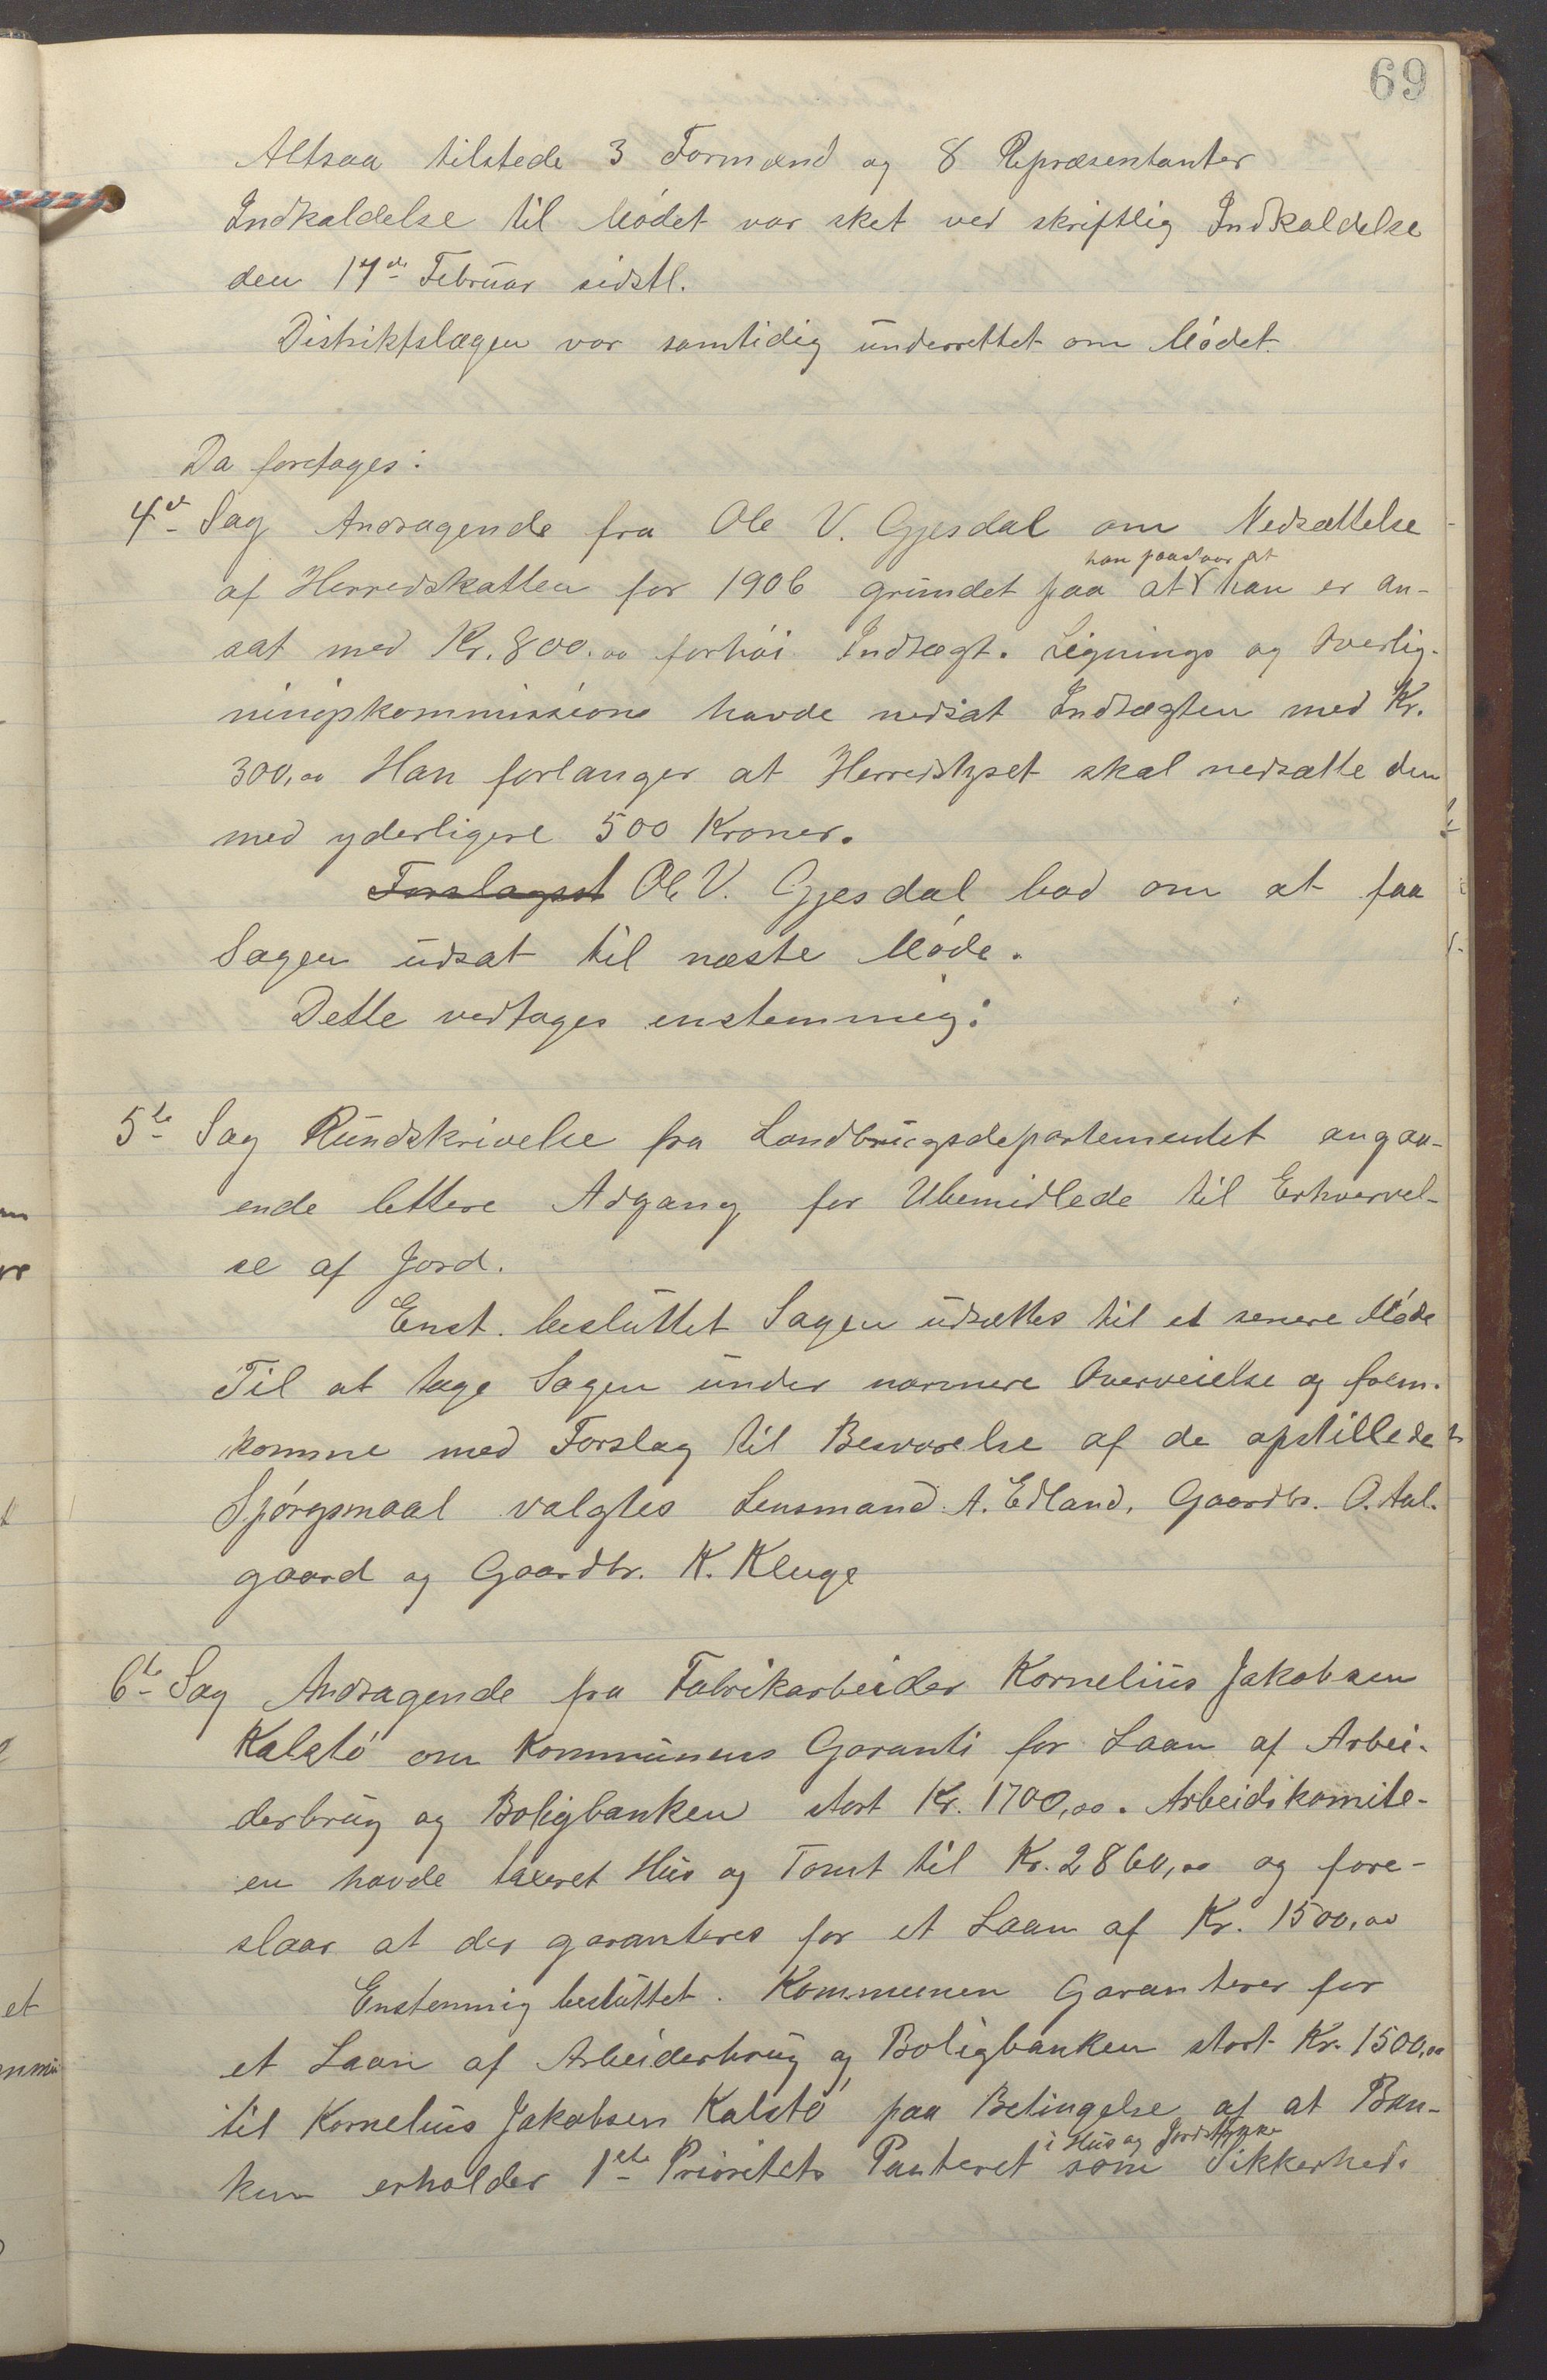 69
Altsaa tilstede 3 Formænd og 8 Repræsentanter
Indkaldelse til Mødet var sket ved skriftlig Indkaldelse
den 17de Februar sidstl.
Distriktslægen var samtidig underrettet om Mødet.
Da foretages:
4de Sag Andragende fra Ole V. Gjesdal om Nedsættelse
han paastaar at
af Herredskatten for 1906 grundet paa at han er an-
sat med Kr. 800.00 forhøi Indtægt. Lignings og Overlig-
ningskommissions havde nedsat Indtægten med Kr.
300,00 Han forlanger at Herredstyret skal nedsætte den
med yderligere 500 Kroner.
Forslaget Ole V. Gjesdal bad om at faa
Sagen udsat til næste Møde.
Dette vedtages enstemmig.
5te Sag Rundskrivelse fra Landbrugsdepartementet angaa-
ende lettere Adgang for Ubemidlede til Erhvervel-
se af Jord.
Enst. besluttet Sagen udsættes til et senere Møde
Til at tage Sagen under nærmere Overveielse og frem-
komme med Forslag til Besvarelse af de opstillede
Spørgsmaal valgtes Lensmand A. Edland, Gaardbr. O. Aal-
gaard og Gaardbr. K. Kluge
6te Sag Andragende fra Fabrikarbeider Kornelius Jakobsen
Kalstø om Kommunens Garanti for Laan af Arbei-
derbrug og Boligbanken stort Kr. 1700,00. Arbeidskomite-
en havde taxeret Hus og Tomt til Kr. 2860,00 og fore-
slaar at der garanteres for et Laan af Kr. 1500,00
Enstemmig besluttet. Kommunen Garanterer for
et Laan af Arbeiderbrug og Boligbanken stort Kr. 1500,00
til Kornelius Jakobsen Kalstø paa Betingelse af at Ban-
i Hus og Jordstykke
ken erholder 1ste Prioritets Panteret som Sikkerhed.